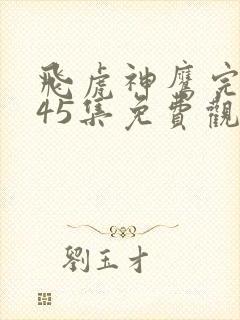 飛虎神鷹完
45集免費觀
劉玉才